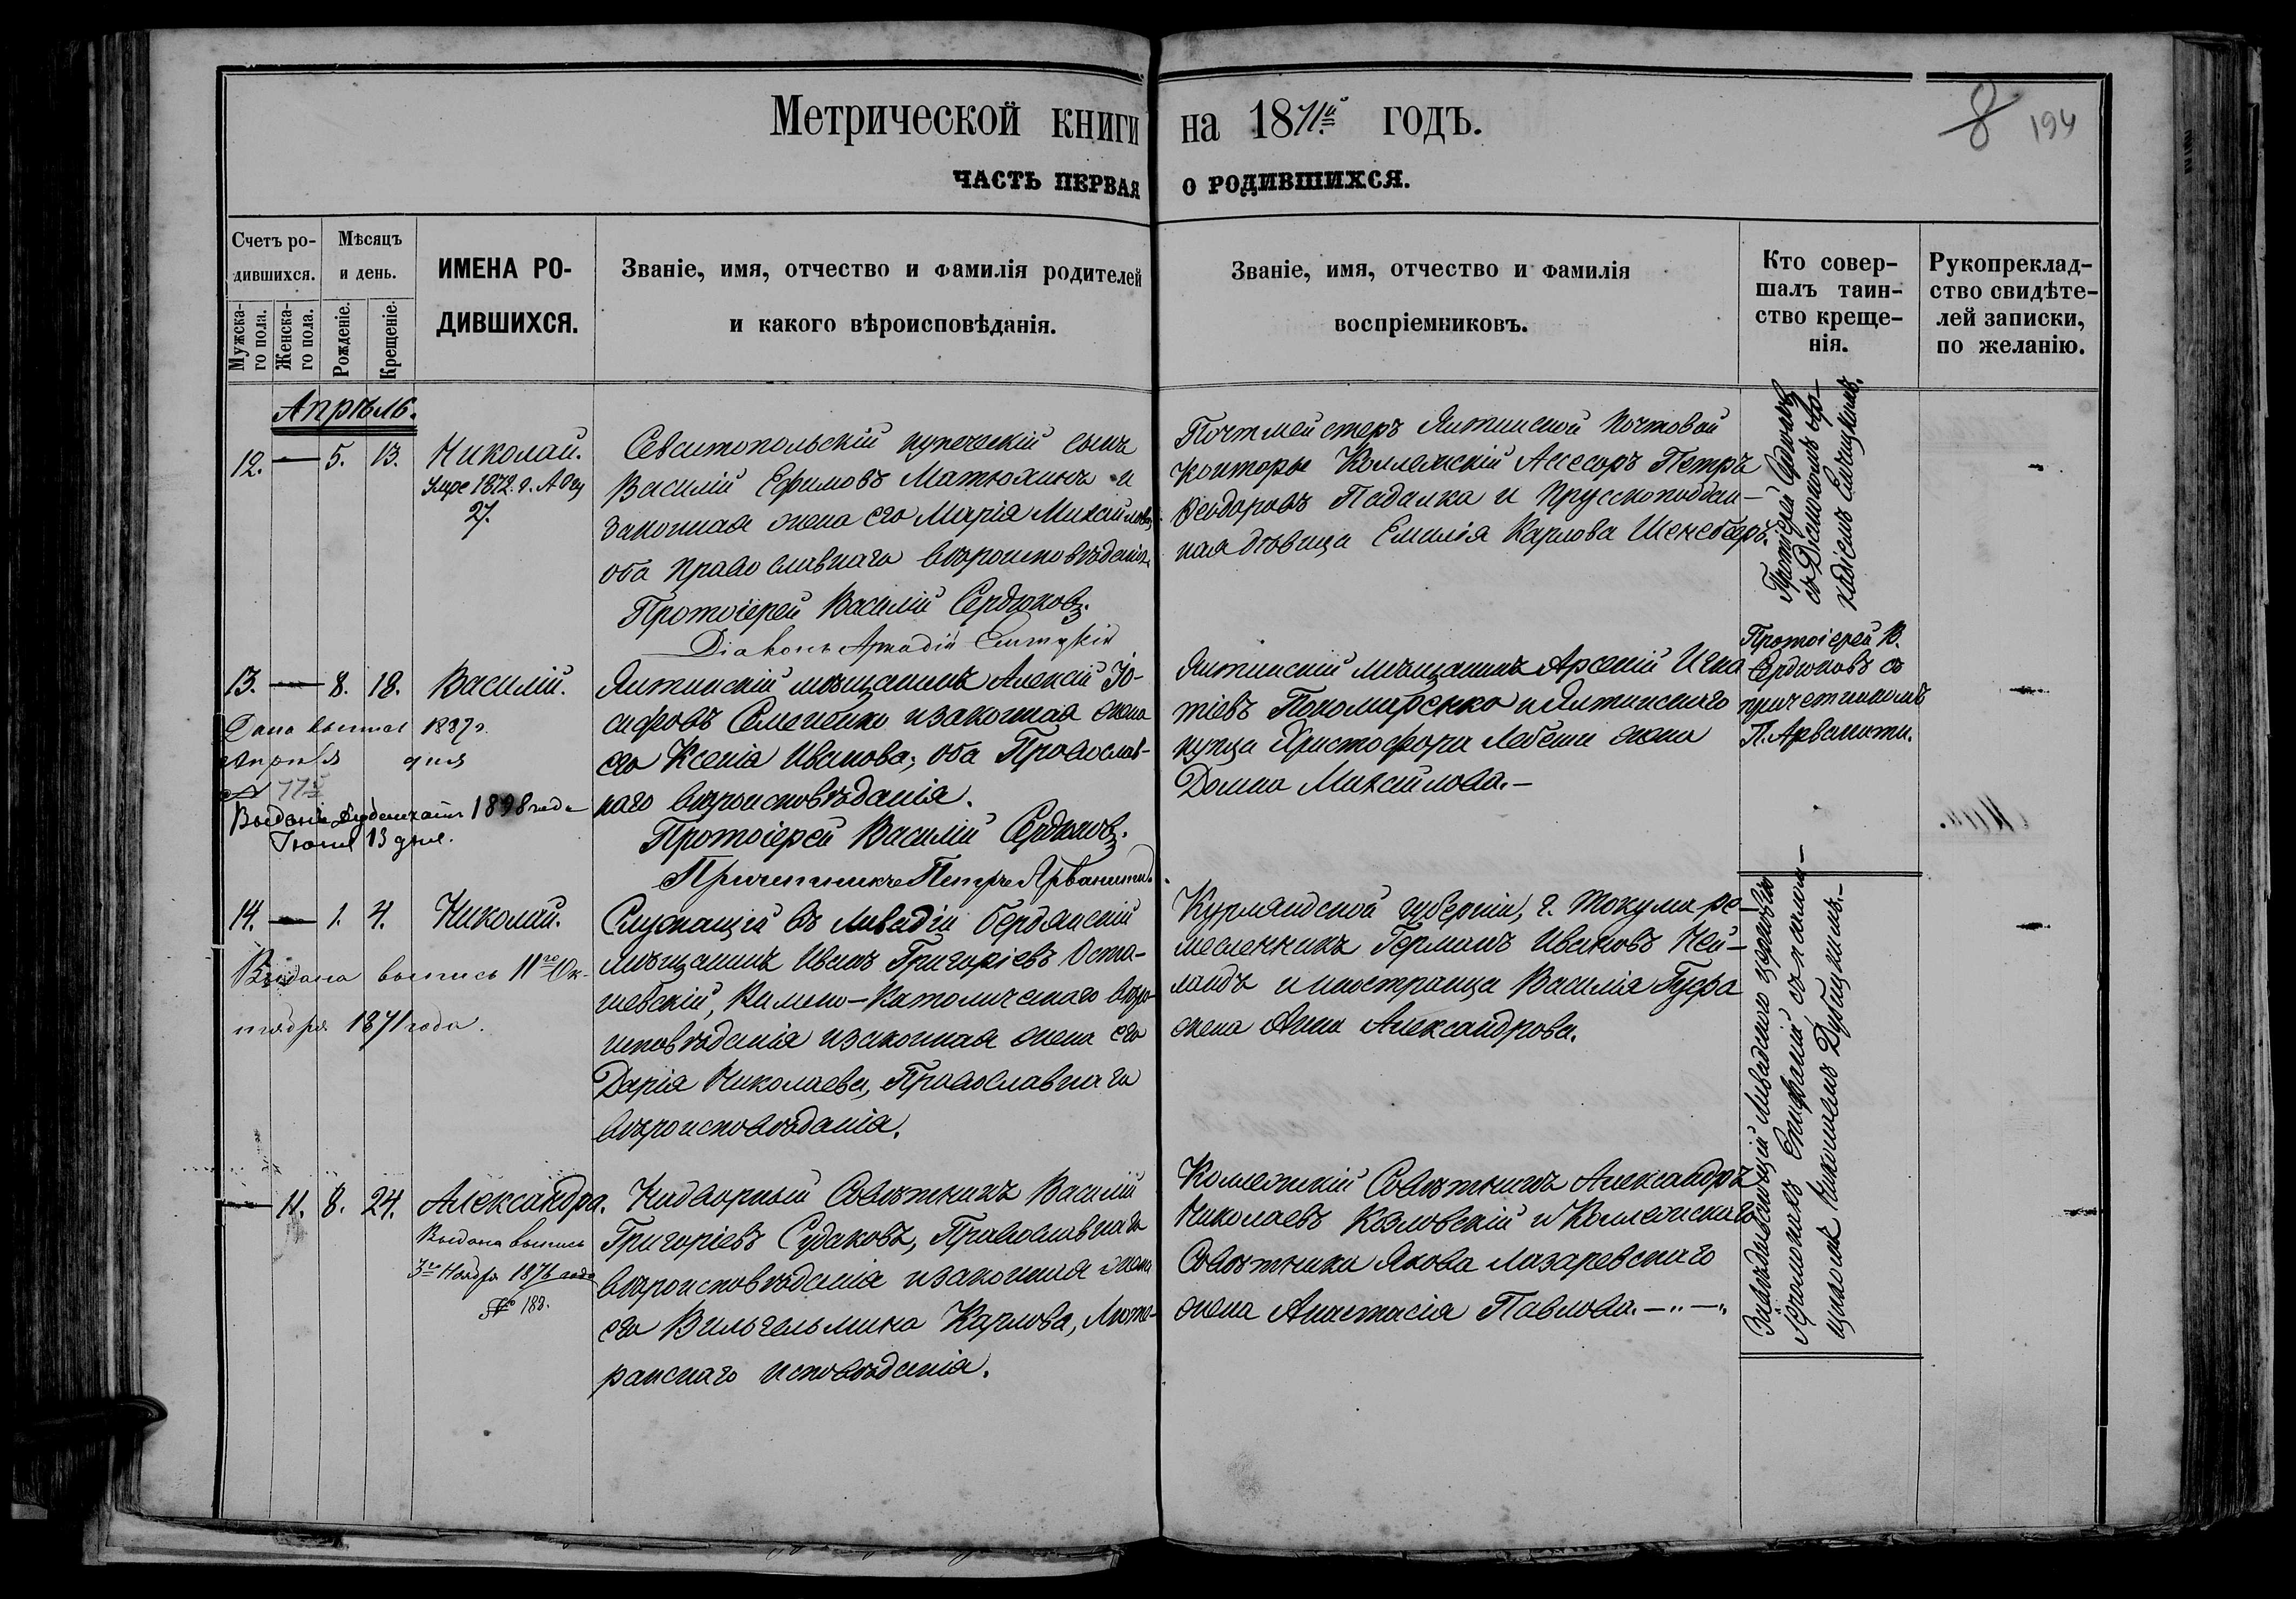 Метрической книги на 1871й годъ.
8 194
ЧАСТЬ ПЕРВАЯ О РОДИВШИХСЯ.
Счетъ ро-
дившихся.
Мужска-
го пола.
Женска-
го пола.
Мѣсяцъ
и день.
Рожденіе.
Крещеніе.
ИМЕНА РО-
ДИВШИХСЯ.
Званіе, имя, отчество и фамилія родителей
и какого вѣроисповѣданія.
Званіе, имя, отчество и фамилія
воспріемниковъ.
Кто совер-
шалъ таин-
ство креще-
нія.
Рукопреклад-
ство свидѣте-
лей записки,
по желанію.
Апрѣль.
12. — 5. 13. Николай.
1872 г.
27.
Севастопольскій купеческій сынъ
Василій Ефимовъ Матюхинъ и
законная жена его Марія Михайлова,
оба православнаго вѣроисповѣданія.
Протоіерей Василій Сердюковъ.
Діаконъ Аркадій
Почтмейстеръ Ялтинской Почтовой
конторы Коллежскій Ассесоръ Петръ
Феодоровъ Падалка и Прусскоподдан-
ная дѣвица Емилія Карлова Шенебергъ.
Протоіерей Сердюковъ
съ Діакономъ Ар-
кадіемъ
13. — 8. 18. Василій.
Дана выпись 1887 г.
Апрѣля дня
1898 года
Іюня 13 дня.
Ялтинскій мѣщанинъ Алексій Іо-
сифовъ Семененко и законная жена
его Ксенія Иванова; оба Православ-
наго вѣроисповѣданія.
Протоіерей Василій Сердюковъ.
Причетникъ Петръ Арванити.
Ялтинскій мѣщанинъ Арсеній Игна
тіевъ Пономаренко и Ялтинскаго
купца Христофора Лебеши жена
Домна Михайлова.—
Протоіерей В.
Сердюковъ съ
причетникомъ
П. Арванити.
14. — 1. 4. Николай.
Выдана выпись 11го Ок-
тября 1871 года.
Служащій въ Ливадіи Бердянскій
мѣщанинъ Иванъ Григоріевъ Оста-
шевскій, Римско-Католическаго вѣро-
исповѣданія и законная жена его
Дарія Николаева, Православнаго
вѣроисповѣданія.
Курляндской губерніи, г. Токума ре-
месленникъ Германъ Ивановъ Ней-
ландъ и иностранца Василія Гуфа
жена Анна Александрова.
Завѣдывающій Ливадскою церковію
Іеромонахъ Епифаній съ псалом-
щикомъ Николаемъ Дубицкимъ.—
— 11. 8. 24. Александра.
Выдана выпись
3го Ноября 1876 года
№ 183.
Надворный Совѣтникъ Василій
Григоріевъ Судаковъ, Православнаго
вѣроисповѣданія и законная жена
его Вильгельмина Карлова, Люте-
ранскаго исповѣданія.
Коллежскій Совѣтникъ Александръ
Николаевъ Козловскій и Коллежскаго
Совѣтника Якова Лазаревскаго
жена Анастасія Павлова.—"—"